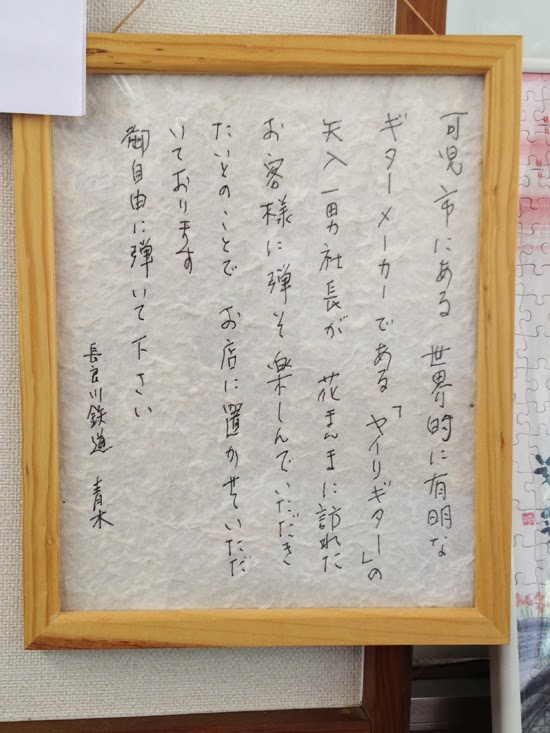 可児市にある 世界的に有明な
ギターメーカーである「ヤイリギター」の
矢入一男社長が 花まんまに訪れた
お客様に弾そ楽しんでいだだき
たいとのことで お店に置かせていただ
いております
御自由に弾いて下さい
長良川鉄道 青木